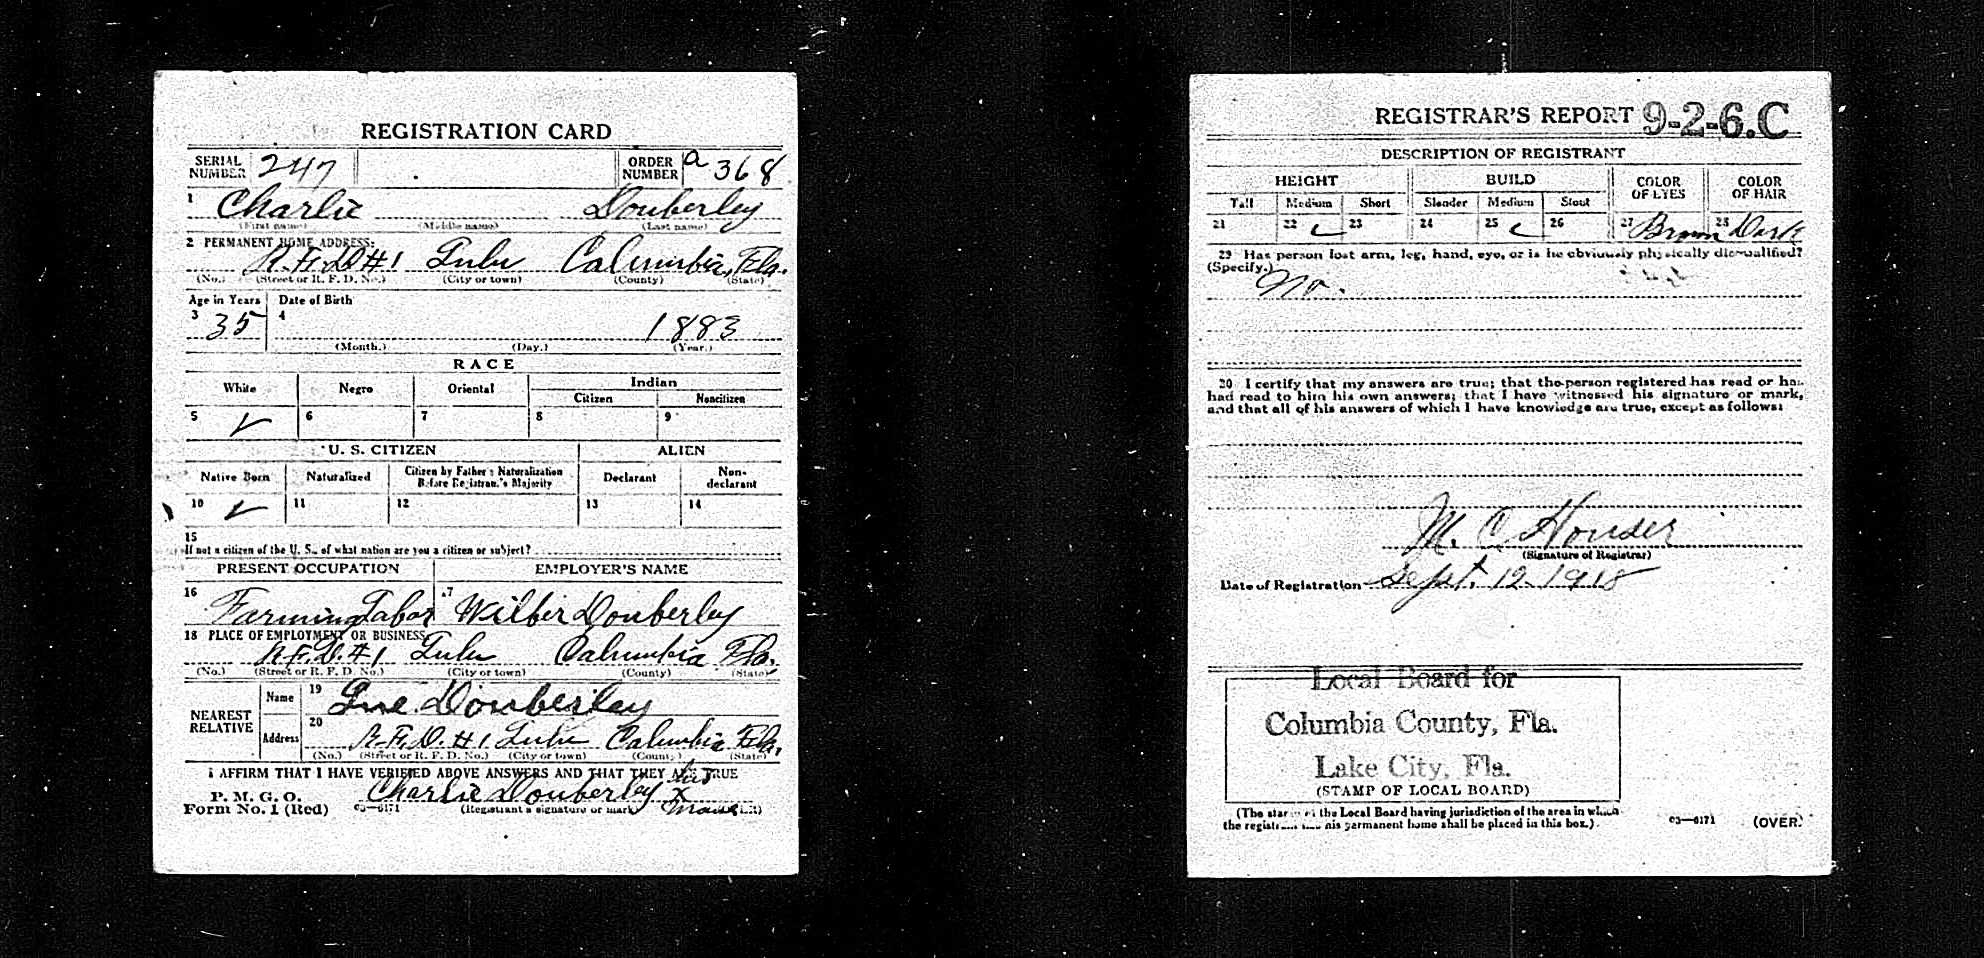 REGISTRATION CARD
SERIAL NUMBER 247 ORDER NUMBER a 368
1 Charlie Douberley
(First name) (Middle name) (Last name)
2 PERMANENT HOME ADDRESS:
R.F.D #1 Lulu Columbia, Fla.
(No.) (Street or R. F. D. No.) (City or town) (County) (State)
Age in Years Date of Birth
3 35 4 1883
(Month.) (Day.) (Year.)
RACE
White Negro Oriental Indian
Citizen Noncitizen
5 ✓ 6 7 8 9
U. S. CITIZEN ALIEN
Native Born Naturalized Citizen by Father's Naturalization Before Registrant's Majority Declarant Non-declarant
10 ✓ 11 12 13 14
15
If not a citizen of the U. S., of what nation are you a citizen or subject?
PRESENT OCCUPATION EMPLOYER'S NAME
16 Farming Labor 17 Wilber Douberley
18 PLACE OF EMPLOYMENT OR BUSINESS:
R.F.D. #1 Lulu Columbia Fla.
(No.) (Street or R. F. D. No.) (City or town) (County) (State)
NEAREST RELATIVE
Name 19 Douberley
Address 20 R.F.D. #1 Lulu Columbia Fla.
(No.) (Street or R. F. D. No.) (City or town) (County) (State)
I AFFIRM THAT I HAVE VERIFIED ABOVE ANSWERS AND THAT THEY ARE TRUE
P. M. G. O.
Form No. 1 (Red) 03—6171 Charlie Douberley his x mark
(Registrant's signature or mark)
REGISTRAR'S REPORT 9-2-6.C
DESCRIPTION OF REGISTRANT
HEIGHT BUILD COLOR OF EYES COLOR OF HAIR
Tall Medium Short Slender Medium Stout
21 22 ✓ 23 24 25 ✓ 26 27 Brown 28 Dark
29 Has person lost arm, leg, hand, eye, or is he obviously physically disqualified?
(Specify.) No.
30 I certify that my answers are true; that the person registered has read or has
had read to him his own answers; that I have witnessed his signature or mark,
and that all of his answers of which I have knowledge are true, except as follows:
M. C. Houser
(Signature of Registrar)
Date of Registration Sept. 12 1918
Local Board for
Columbia County, Fla.
Lake City, Fla.
(STAMP OF LOCAL BOARD)
(The stamp of the Local Board having jurisdiction of the area in which
the registrant has his permanent home shall be placed in this box.)
03—6171 (OVER)